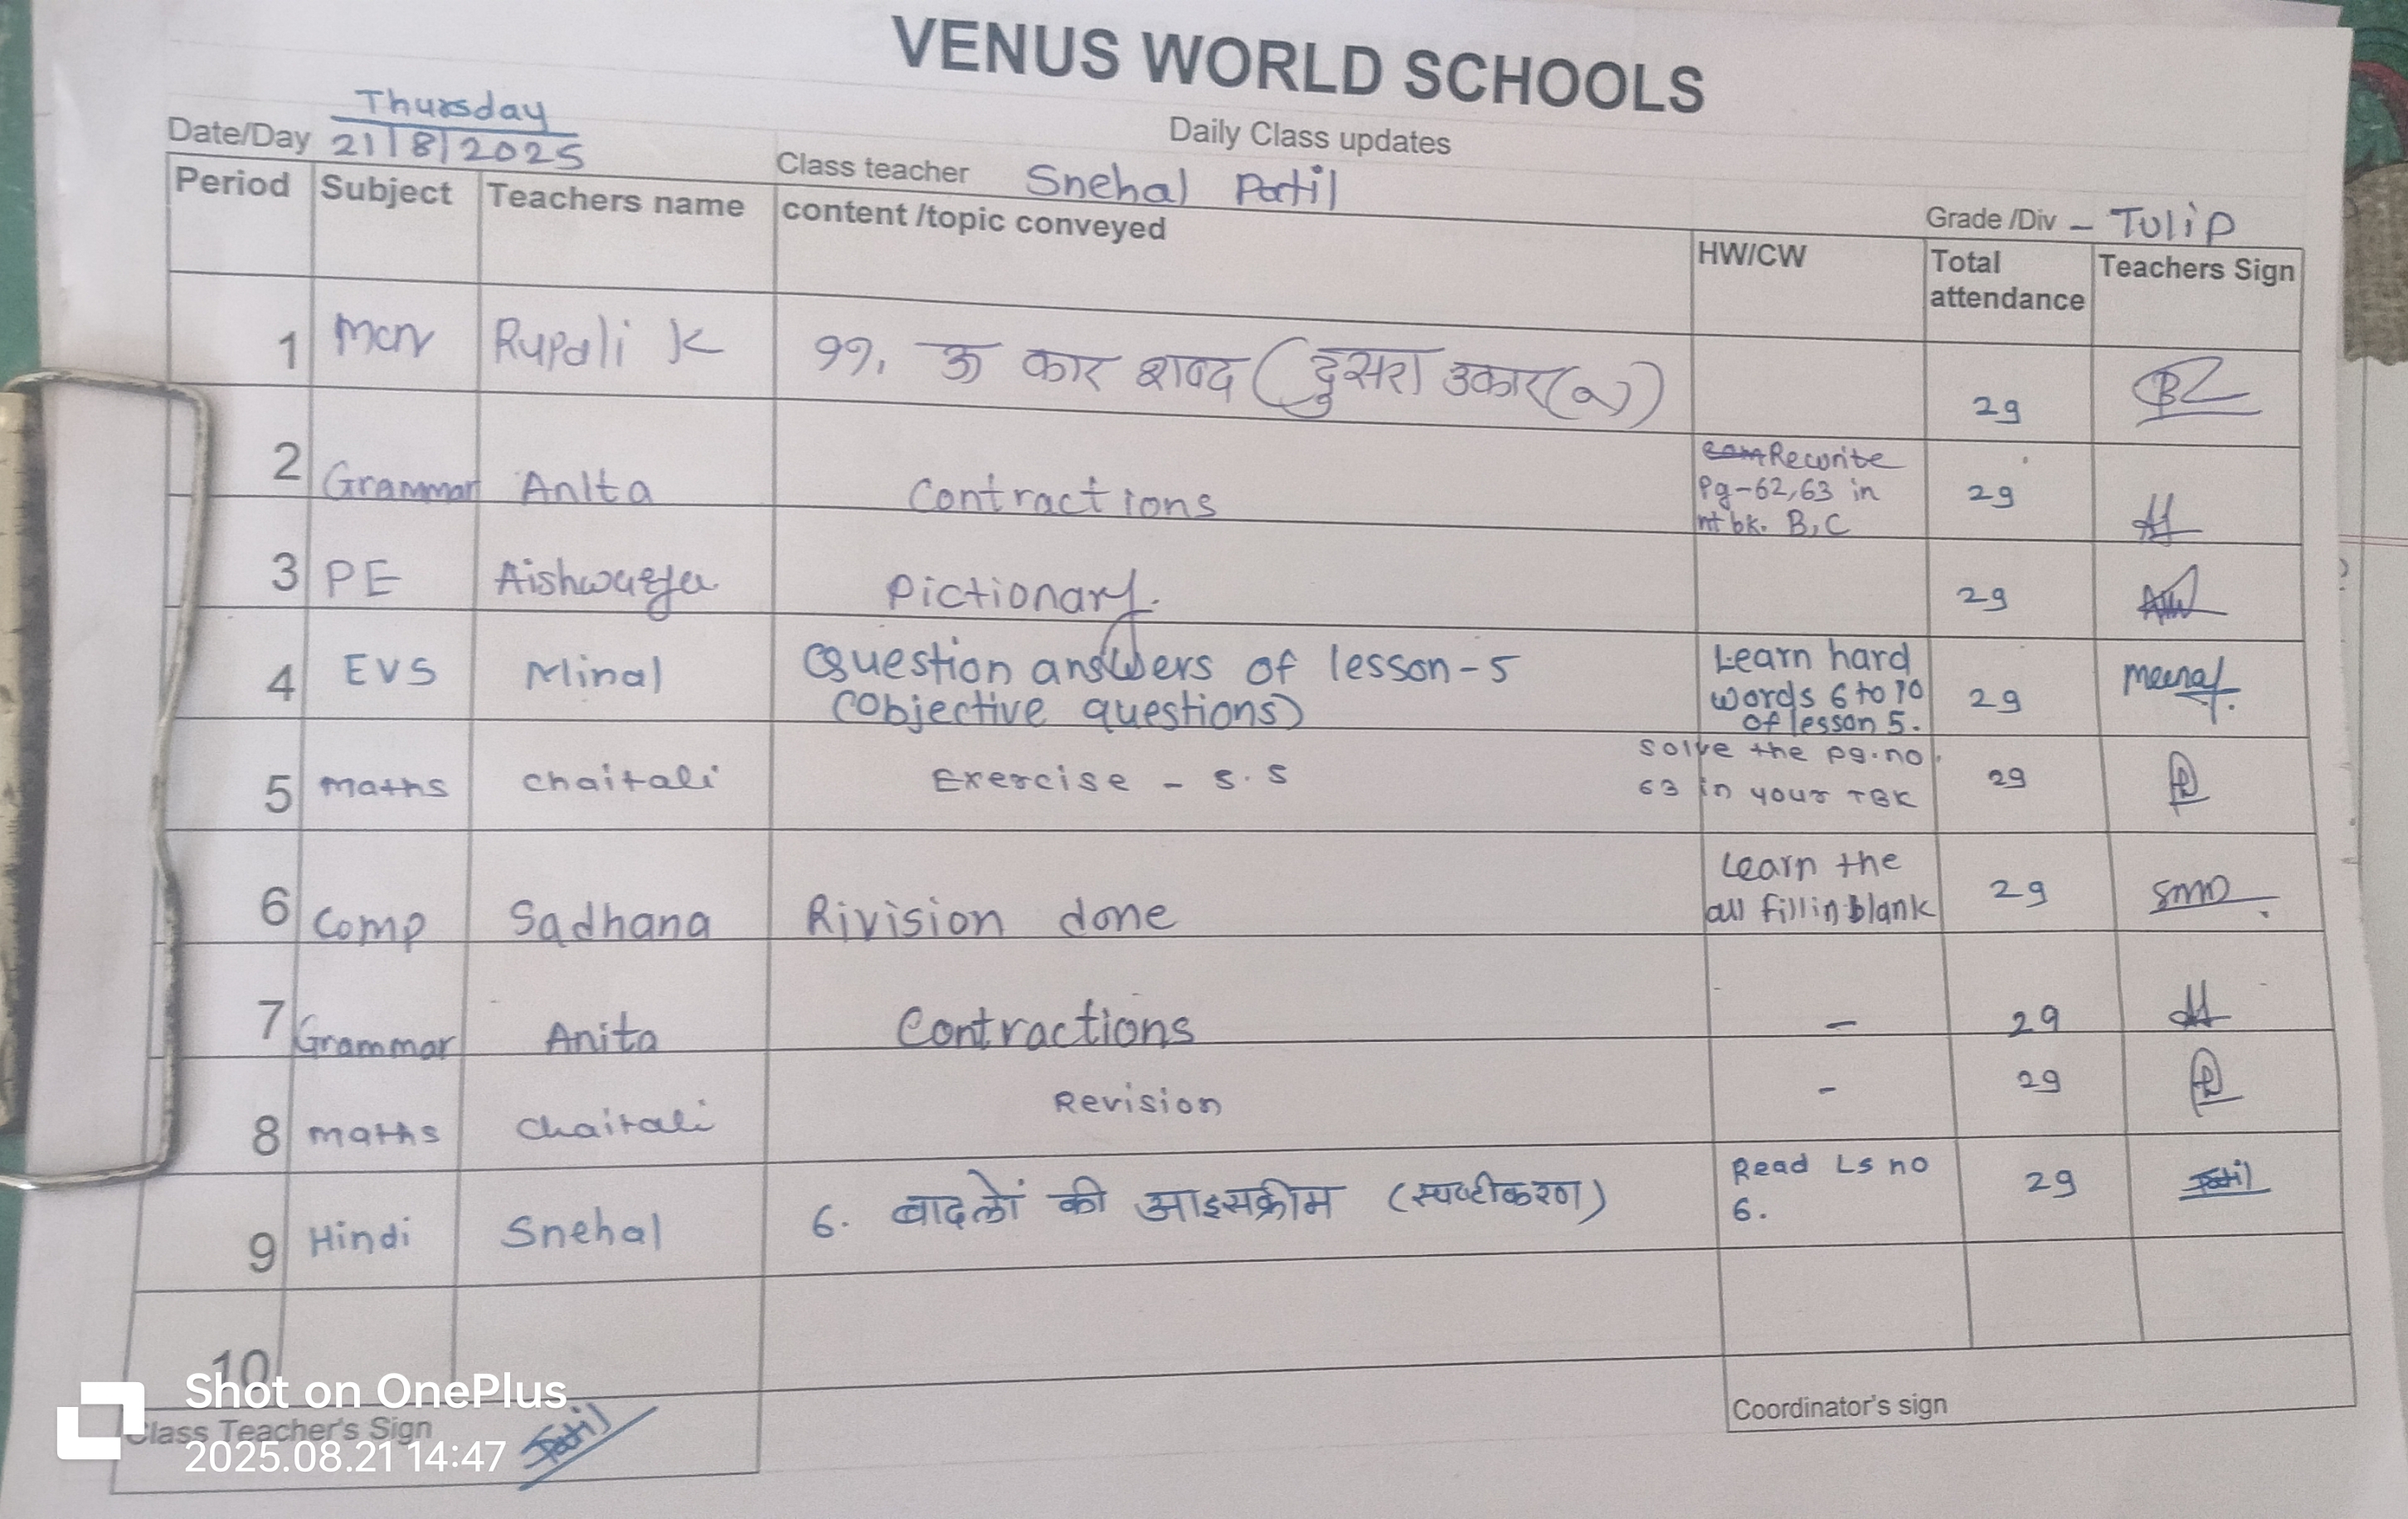 VENUS WORLD SCHOOLS
Daily Class updates
Thursday
Date/Day 21/8/2025
Class teacher Snehal Patil
Grade /Div - Tulip
Period Subject Teachers name content /topic conveyed HW/CW Total attendance Teachers Sign
1 Mar Rupali K ११. ऊ कार शब्द (दुसरा उकार(ू) 29
2 Grammar Anita Contractions Rewrite
Pg-62,63 in 29
nt bk. B,C
3 PE Aishwarya Pictionary. 29
4 EVS Minal Question answers of lesson-5 Learn hard
(Objective questions) words 6 to 10 29 Meenal
of lesson 5.
5 maths chaitali Exercise - 5.5 solve the pg.no. 29
63 in your TBK
6 Comp Sadhana Rivision done Learn the 29
all fill in blank
7 Grammar Anita Contractions - 29
8 maths chaitali Revision - 29
9 Hindi Snehal 6. बादलों की आइसक्रीम (स्पष्टीकरण) Read Ls no 29 Patil
6.
10
Class Teacher's Sign Patil
Coordinator's sign
Shot on OnePlus
2025.08.21 14:47